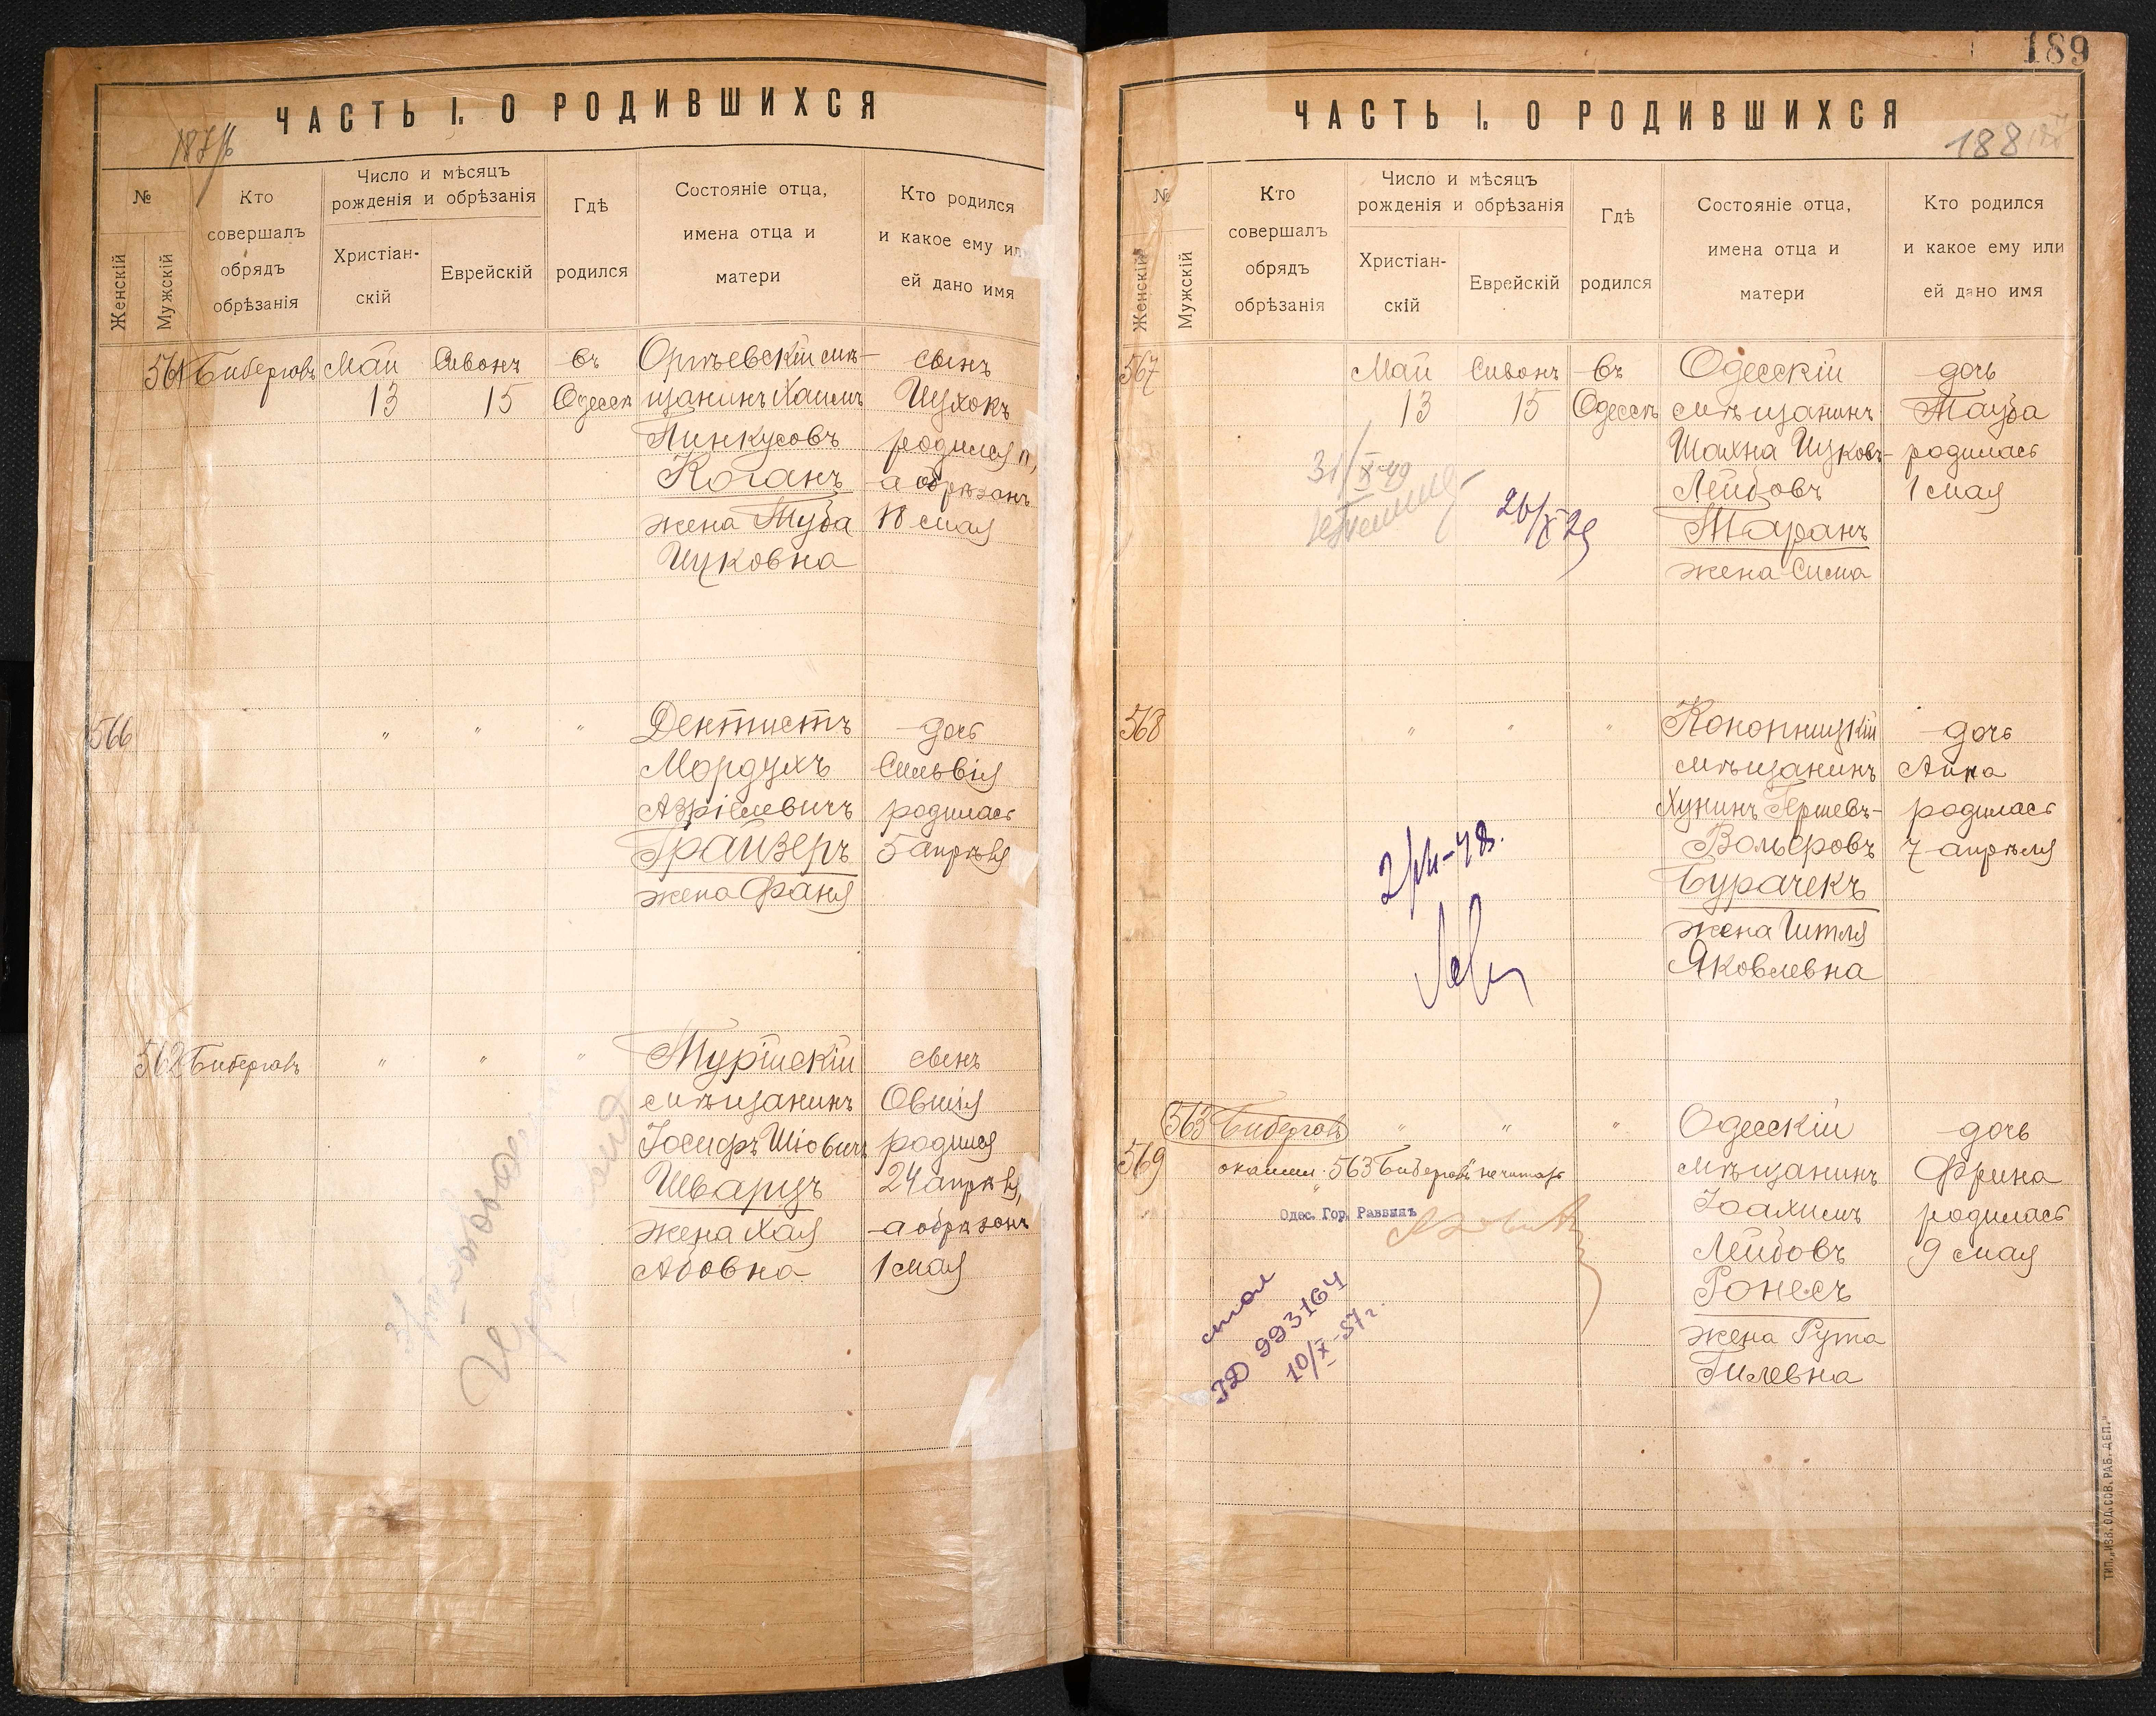 ЧАСТЬ I. О РОДИВШИХСЯ
№
Женскій
Мужскій
Кто
совершалъ
обрядъ
обрѣзанія
Число и мѣсяцъ
рожденія и обрѣзанія
Христіан-
скій
Еврейскій
Гдѣ
родился
Состояніе отца,
имена отца и
матери
Кто родился
и какое ему или
ей дано имя
561 Бибергова Май Сивонъ въ
13 15 Одессѣ
Оргѣевскій мѣ-
щанинъ Хаимъ
Пинкусовъ
Коганъ
жена Туба
Ицковна
сынъ
Ицхокъ
родился
а обрѣзанъ
18 мая
566 " " "
Дентистъ
Мордухъ
Азріелевичъ
Грайзеръ
жена Фаня
дочь
Сильвія
родилась
5 апрѣля
562 Биберговъ " " "
Турійскій
мѣщанинъ
Іосифъ Шіовичъ
Шварцъ
жена Хая
Абовна
сынъ
Овшія
родился
24 апрѣля,
а обрѣзанъ
1 мая
189
ЧАСТЬ I. О РОДИВШИХСЯ
188
№
Женскій
Мужскій
Кто
совершалъ
обрядъ
обрѣзанія
Число и мѣсяцъ
рожденія и обрѣзанія
Христіан-
скій
Еврейскій
Гдѣ
родился
Состояніе отца,
имена отца и
матери
Кто родился
и какое ему или
ей дано имя
567 Май Сивонъ въ
13 15 Одессѣ
31/X-49
26/X 29
Одесскій
мѣщанинъ
Шахна Ицковъ-
Лейбовъ
Таранъ
жена Сима
дочь
Тауба
родилась
1 мая
568 " " "
Кононницкій
мѣщанинъ
Хунинъ Гершевъ-
Вольфовъ
Бурачекъ
жена Ита
Яковлевна
дочь
Анна
родилась
7 апрѣля
563 Биберговъ " " "
569
563 Биберговъ не читать
Одес. Гор. Раввинъ
Одесскій
мѣщанинъ
Іоахимъ
Лейбовъ
Ронесъ
жена Рута
Гилевна
дочь
Фрина
родилась
9 мая
993164
10/X-57 г.
ТИП. „ИЗВ. ОД. СОВ. РАБ. ДЕП."